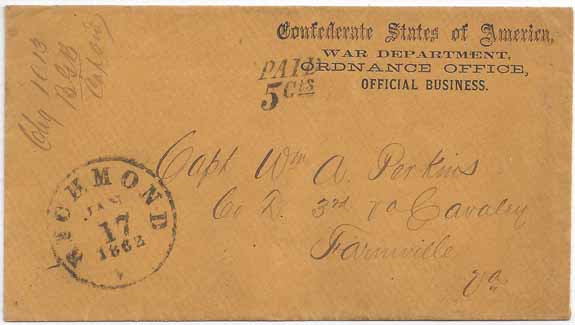 Confederate States of America,
WAR DEPARTMENT,
ORDNANCE OFFICE,
OFFICIAL BUSINESS.
PAID
5 Cts
Chg 1013
Capt Wm A. Perkins
Co D. 3rd Va Cavalry
Farmville
Va
RICHMOND
JAN
17
1862